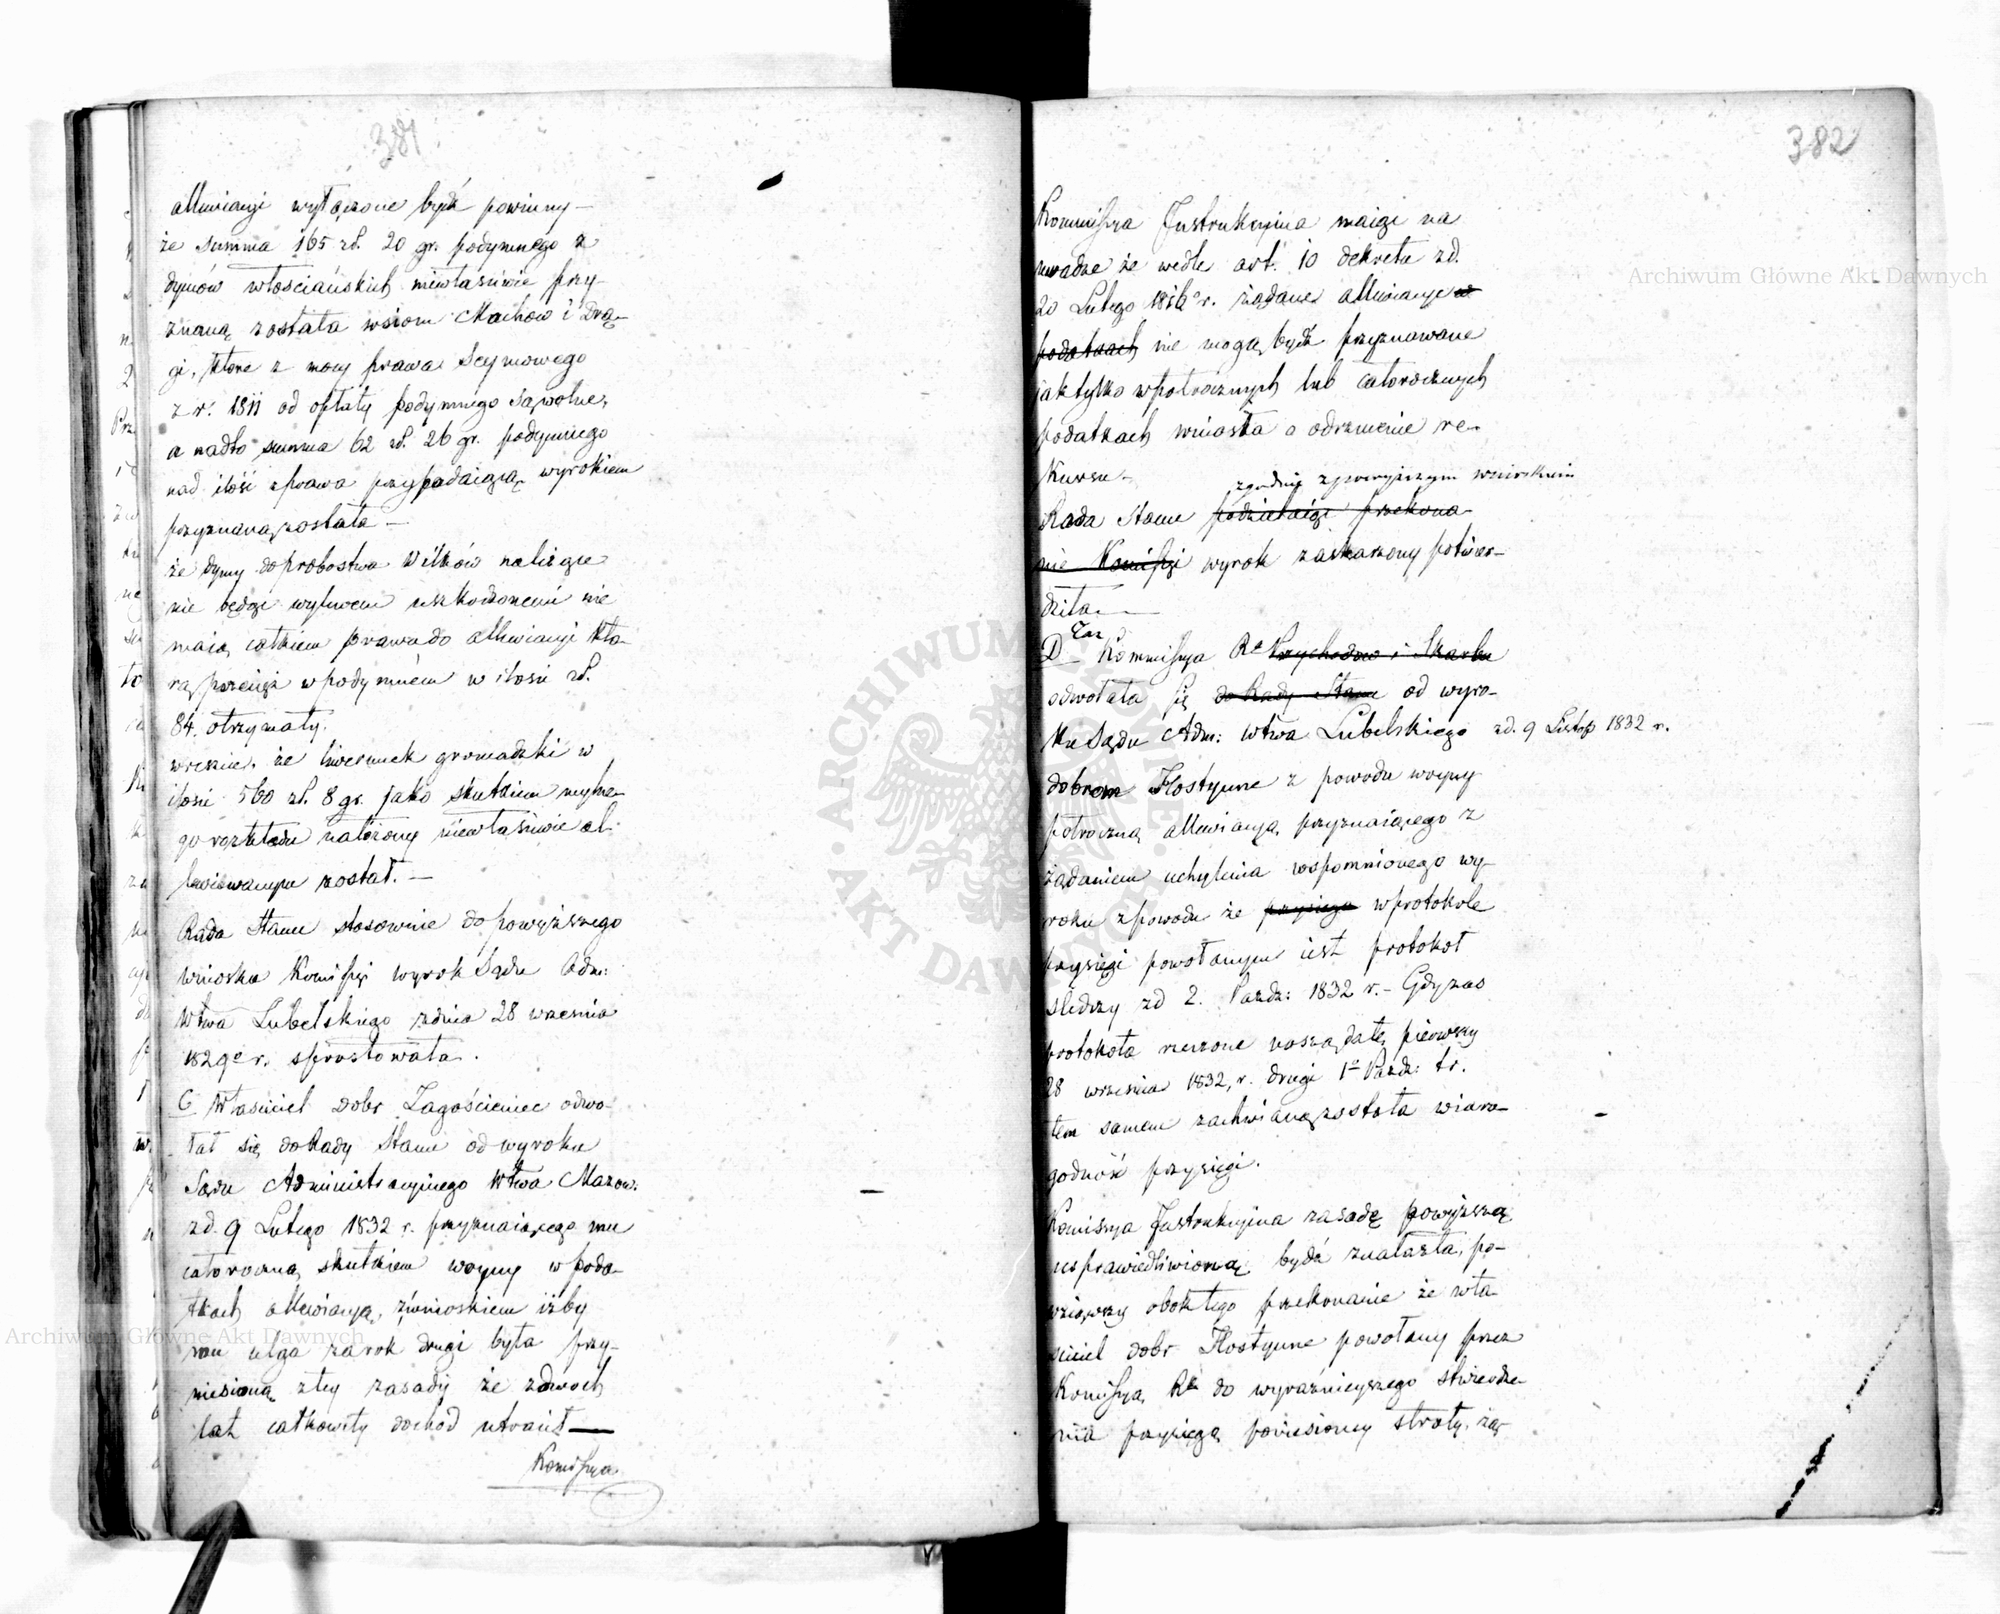 381
alluwiacyi wyłączone bydź powinny —
że summa 165 zł. 20 gr. podymnego z
dymów włościańskich niewłaściwie przy-
znaną została wsiom Machow i
gi, które z mocy prawa Seymowego
z r. 1811 od opłaty podymnego są wolne,
a nadto summa 62 zł. 26 gr. podymnego
nad ilość z prawa przypadaiącą wyrokiem
przyznaną została —
że dymy do probostwa Wilków należące
nie będąc wylewem uszkodzonemi nie
maią całkiem prawa do alluwiacyi któ-
rą przecież w podymném w ilości zł.
84. otrzymały.
wreszcie, że liwerunek gromadzki w
ilości 560 zł. 8 gr. jako skutkiem mylne-
go rozkładu nałożony niewłaściwie al-
lewiowanym został. —
Rada Stanu stosownie do powyższego
wniosku Komissyi wyrok Sądu Adm:
Wtwa Lubelskiego z dnia 28 września
1829o r. sprostowała.
C Właściciel dobr Zagościniec odwo-
łał się do Rady Stanu od wyroku
Sądu Administracyinego Wtwa Mazow.
z d. 9 Lutego 1832 r. przyznaiącego mu
całoroczną skutkiem woyny w poda-
tkach allewiacyą, z wnioskiem iżby
mu ulga za rok drugi była przy-
niesioną z tey zasady że z dwoch
lat całkowity dochod utracił —
Komissya
382
Kommissya Instrukcyina maiąc na
uwadze że wedle art. 10 dekretu z d.
20 Lutego 1816o r. żądane allewiacye w
podatkach nie mogą bydź przyznawane
jak tylko w półrocznych lub całorocznych
podatkach wniosła o odrzucenie re-
kursu —
zgodnie z powyższym wnioskiem
Rada Stanu podzielaiąc przekona-
nie Komissyi wyrok zaskarżony potwier-
dziła —
D Kommissya Ra Przychodow i Skarbu
odwołała się do Rady Stanu od wyro-
ku Sądu Adm: Wtwa Lubelskiego z d. 9 Listop 1832 r.
dobrom Hostynne z powodu woyny
półroczną allewiacyą przyznaiącego z
żądaniem uchylenia wspomnionego wy-
roku z powodu że przysięga w protokole
przysięgi powołanym iest protokoł
śledczy z d 2. Pazdz: 1832 r. — Gdy zas
protokoła rzeczone noszą datę, pierwszy
28 września 1832, r. drugi 1o Pazdz: t. r.
tem samem zachwianą została wiaro-
godność przysięgi.
Komissya Instrukcyina zasadę powyższą
usprawiedliwioną bydź znalazła, po-
wziąwszy obok tego przekonanie że wła-
ściciel dobr Hostynne powołany przez
Komissyą Ra do wyraźnieyszego stwierdze-
nia przysięgą poniesioney straty, żą-